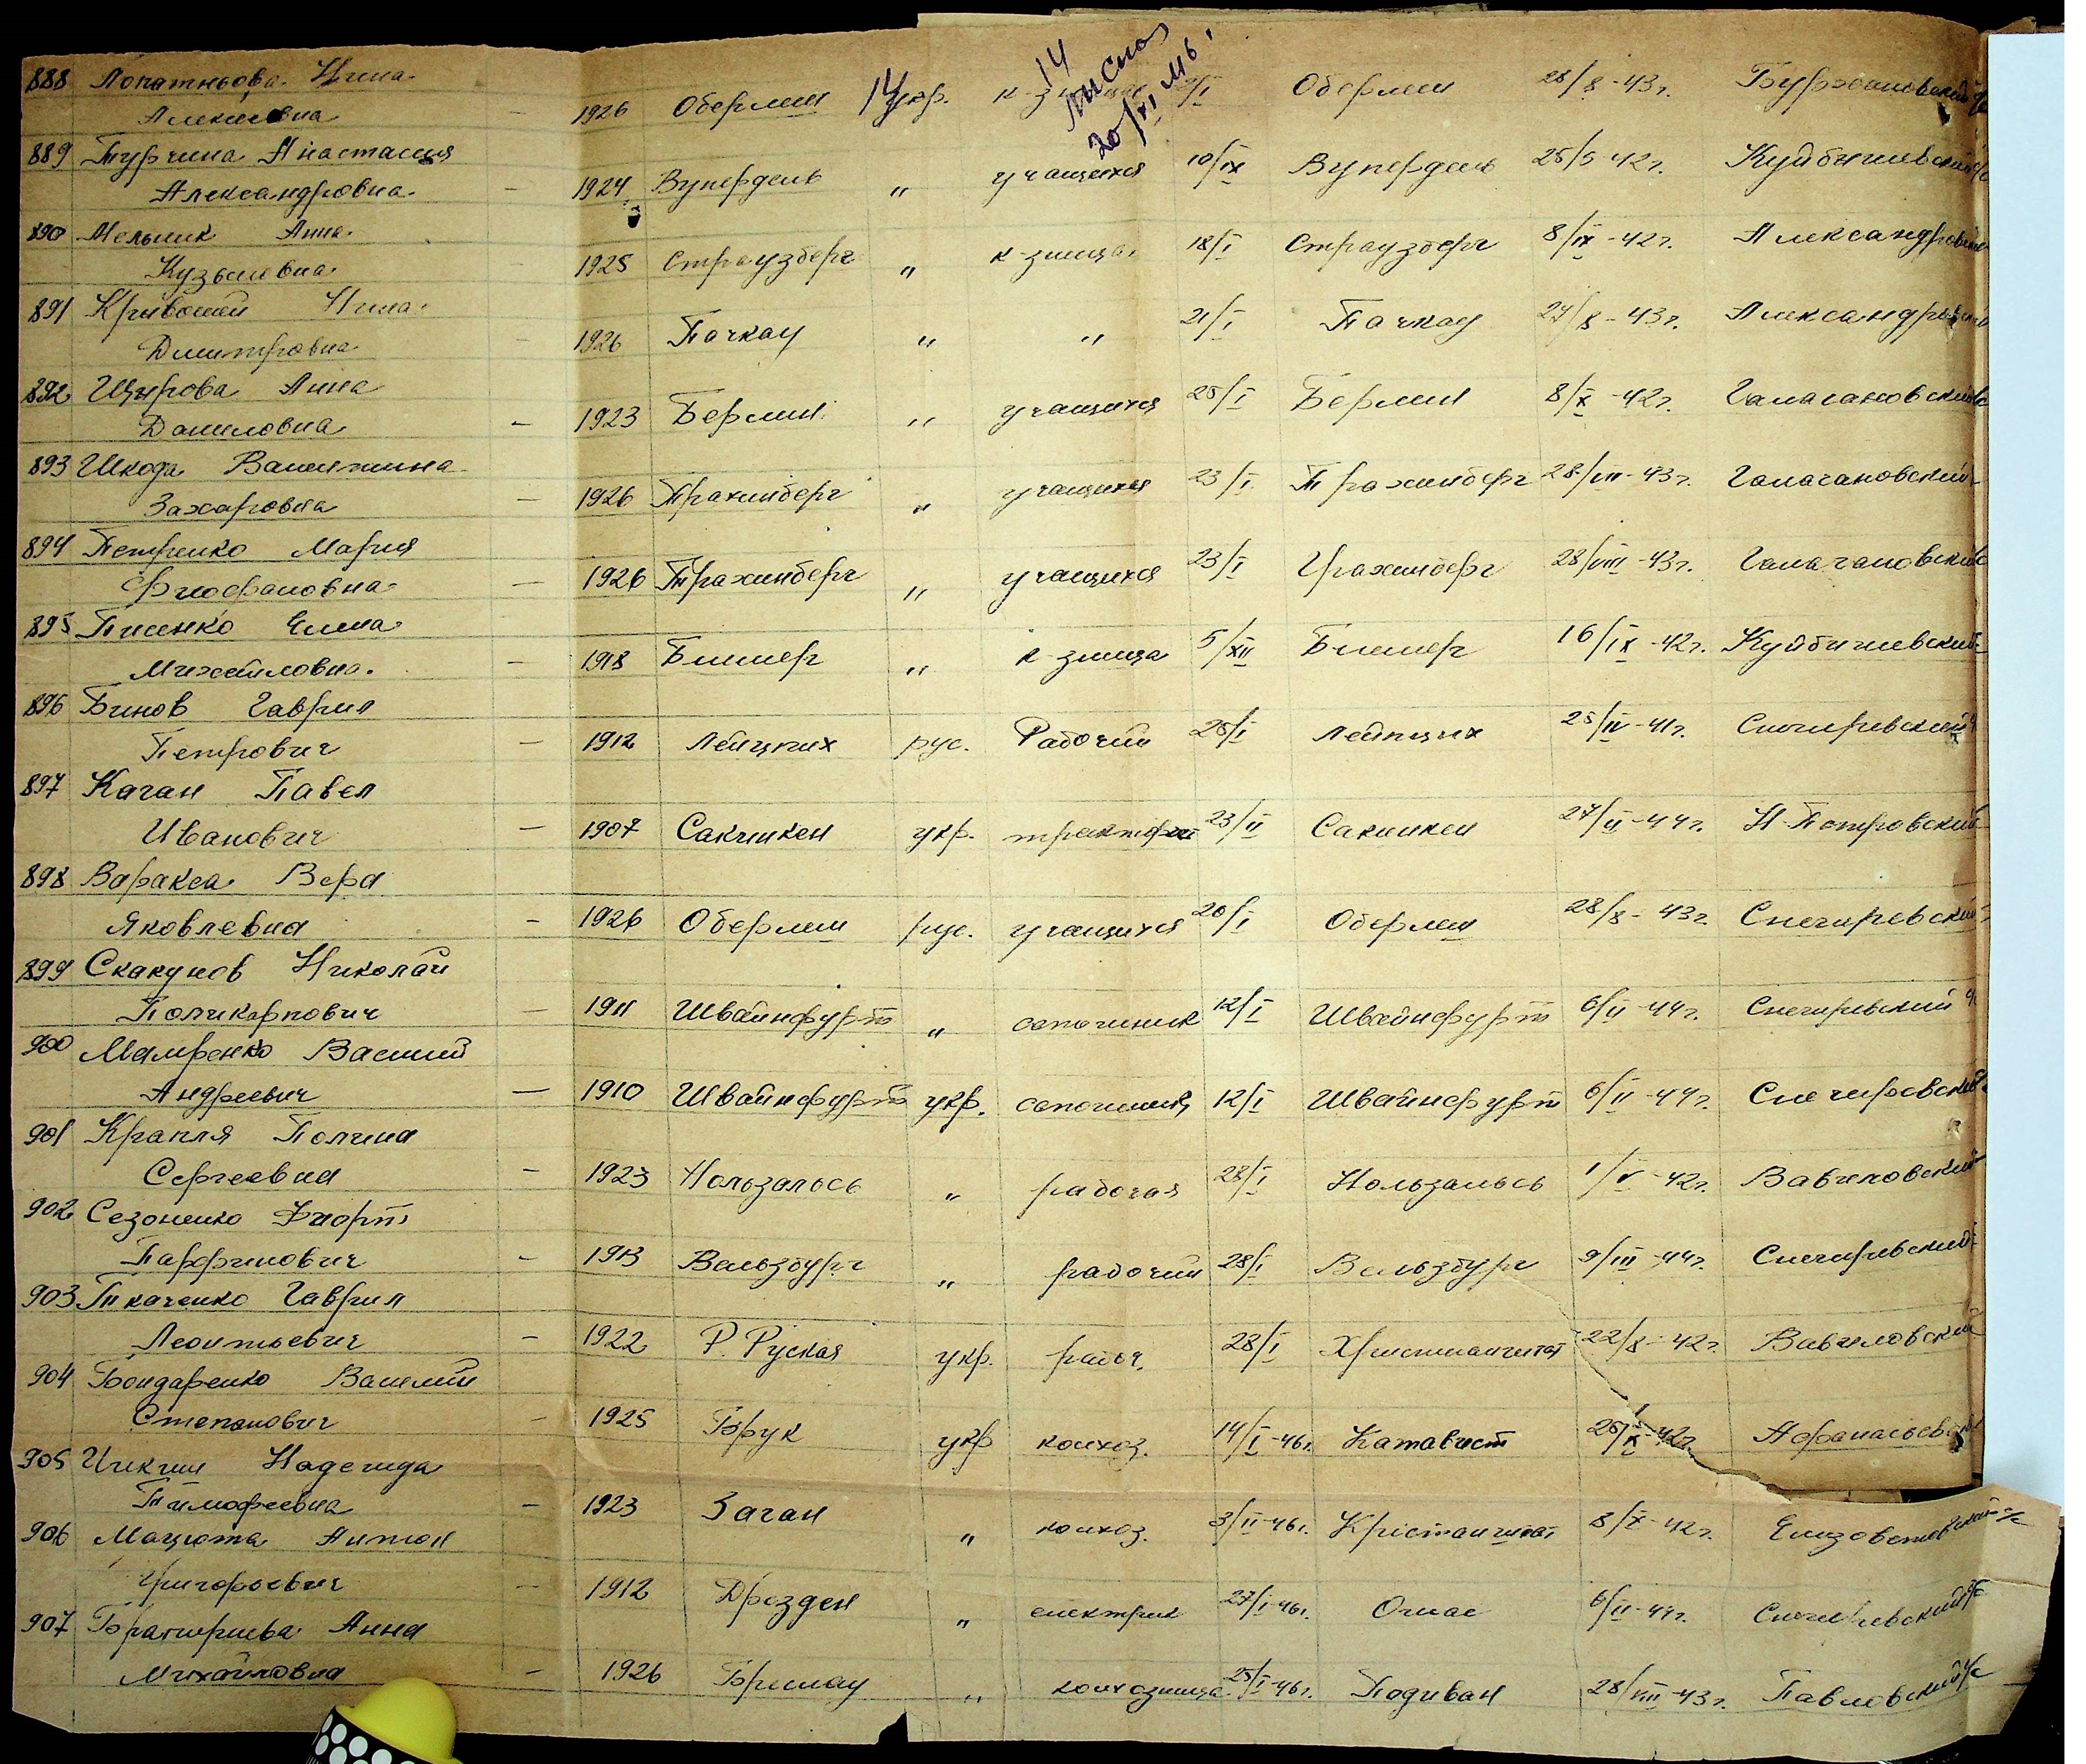 14
20/XI 46.
888 Лопатньова Нина
Алексеевна — 1926 Оберлин укр. к-зница /I Оберлин 28/8-43г.
889 Турчина Анастасия
Александровна — 1924 Вупердель " учащихся 10/IX Вупердель 25/5-42г. Куйбишевский
890 Мельник Анна
Кузьмевна — 1925 Страузберг " к-зница 18/I Страузберг 8/IX-42г. Александровский
891 Кривошей Нина
Дмитровна — 1926 Почкау " " 21/I Пачкау 27/8-43г. Александровский
892 Щирова Анна
Даниловна — 1923 Берлин " учащихся 25/I Берлин 8/X-42г. Галагановский
893 Шкода Валентина
Захаровна — 1926 Трахинберг " учащихся 23/I Трахинберг 28/VIII-43г. Галагановский
894 Петренко Мария
Феофановна — 1926 Трахинберг " учащихся 23/I Трахинберг 28/VIII-43г. Галагановский
895 Писенко Елена
Михайловна — 1918 " к-зница 5/XII 16/IX-42г. Куйбишевский
896 Бинов Гаврил
Петрович — 1912 Лейцпих рус. Рабочий 25/I Лейпцих 25/IV-41г. Снигиревский
897 Каган Павел
Иванович — 1907 Сакинкен укр. тракторист 23/II Сакинкен 27/II-44г. Н-Петровский
898 Варакса Вера
Яковлевна — 1926 Оберлин рус. учащихся 20/I Оберлин 28/8-43г. Снегиревский
899 Скакунов Николай
Поликарпович — 1911 Швайнфурт " сапожник 12/I Швайнфурт 6/II-44г. Снегиревский
900 Мамренко Василий
Андреевич — 1910 Швайнфурт укр. сапожник 12/I Швайнфурт 6/II-44г. Снегиревский
901 Крапля Полина
Сергеевна — 1923 Нользальсь " рабочая 28/I Нользальсь 1/V-42г. Вавиловский
902 Сезоненко
Парфинович — 1913 Вельзбург " рабочий 28/I Вельзбург 9/III-44г. Снегиревский
903 Ткаченко Гаврил
Леонтьевич — 1922 Р. Руская укр. рабоч. 28/I Христианштат 22/8-42г. Вавиловский
904 Бондаренко Василий
Степанович — 1925 Брук укр колхоз. 14/I-46г. Катавист 26/IX-42г. Афанасьевский
905 Надежда
Тимофеевна — 1923 Заган " колхоз. 3/II-46г. Крістанштат 8/X-42г. Елизоветовский с/с
906 Мацюта Антон
Григорьевич — 1912 Дрезден " електрик 27/I-46г. 6/II-44г. Снегиревский с/с
907 Анна
Михайловна — 1926 Бреслау " колхозница 25/I-46г. Подиван 28/VIII-43г. Павловский с/с